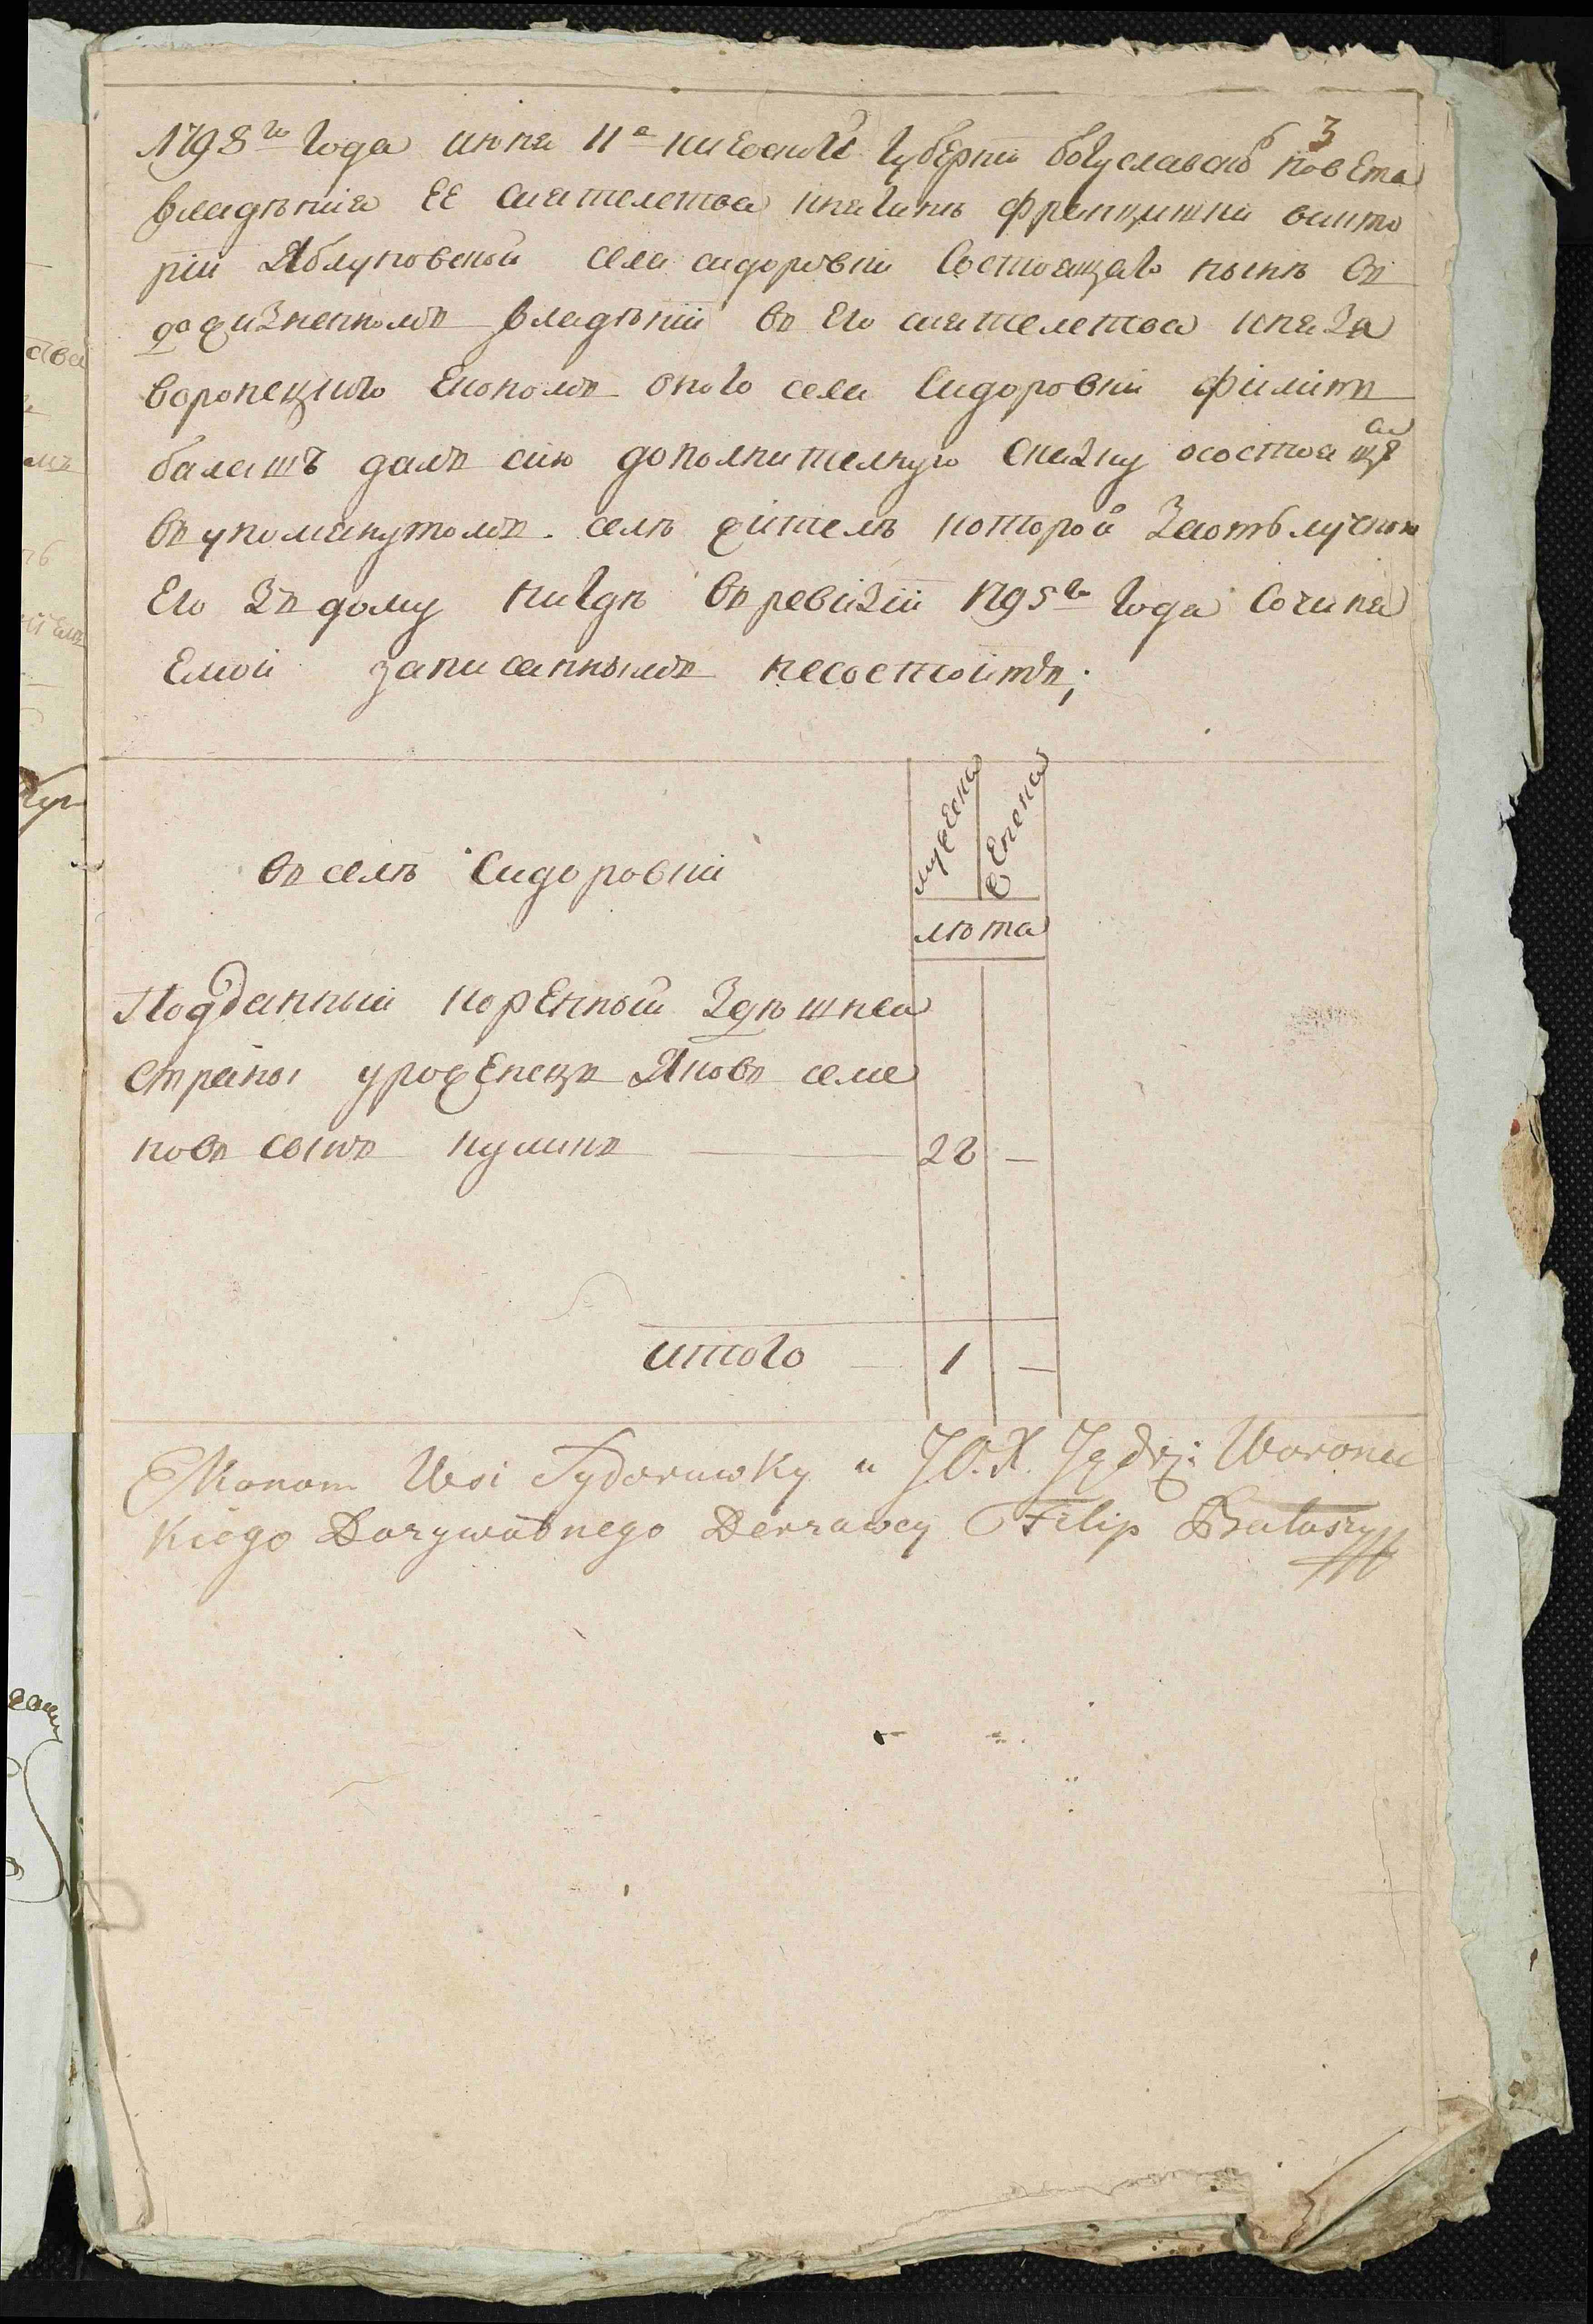 3
1798го Года июня 11а киевской губернїи богуславскаго повета
владѣния ЕЕ сиятелства княгинѣ францишки викто
рїи Яблуновской села сидоровки Состоящаго нынѣ въ
дожизненномъ владѣнїи въ Его сиятелства князя
воронецкого Економъ оного села Сидоровки Филипъ
балашъ далъ сию дополнителную Сказку осостоящ
въупомянутомъ селѣ жителѣ которой Заотълучкою
Его Зъ дому нигдѣ въревизїи 1795го Года Сочиня
Емой записаннымъ несостоитъ;
въ селѣ Сидоровки
мужеска
женска
лѣта
Подданный коренный Здѣшней
страны уроженецъ Яковъ семе
новъ сынъ куликъ 22 —
итого 1 —
Ekonom Wsi Sydoruwky u J.O.X. Jędrz: Woronec
kiego Dożywotnego Derzawcy Filip Bałaszy